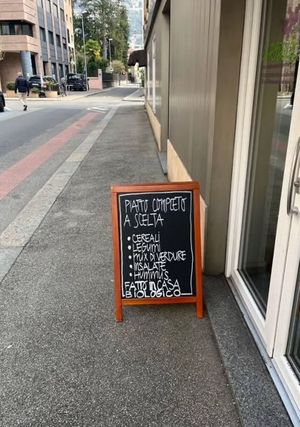 PIATTO COMPLETO
A SCELTA
• CEREALI
• LEGUMI
• MIX DI VERDURE
• INSALATE
• HUMMUS
FATTO IN CASA
BIOLOGICO